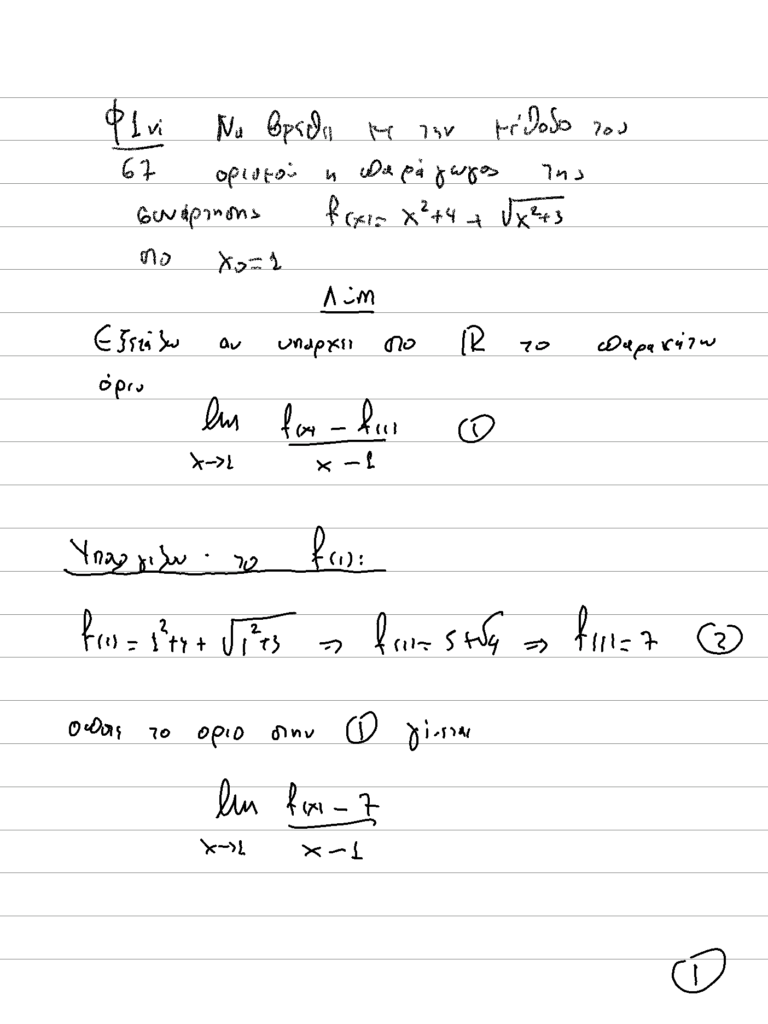 Φ1vi Να βρεθεί με την μέθοδο του
67 ορισμού η παράγωγος της
συνάρτησης f(x)= x²+4+√x²+3
στο x₀=1
Λύση
Εξετάζω αν υπάρχει στο ℝ το παρακάτω
όριο
lim f(x) - f(1) / x - 1 ①
x→1
Υπολογίζω το f(1):
f(1) = 1²+4+√1²+3 ⇒ f(1)= 5+√4 ⇒ f(1)=7 ②
οπότε το οριο στην ① γίνεται
lim f(x) - 7 / x - 1
x→1
①